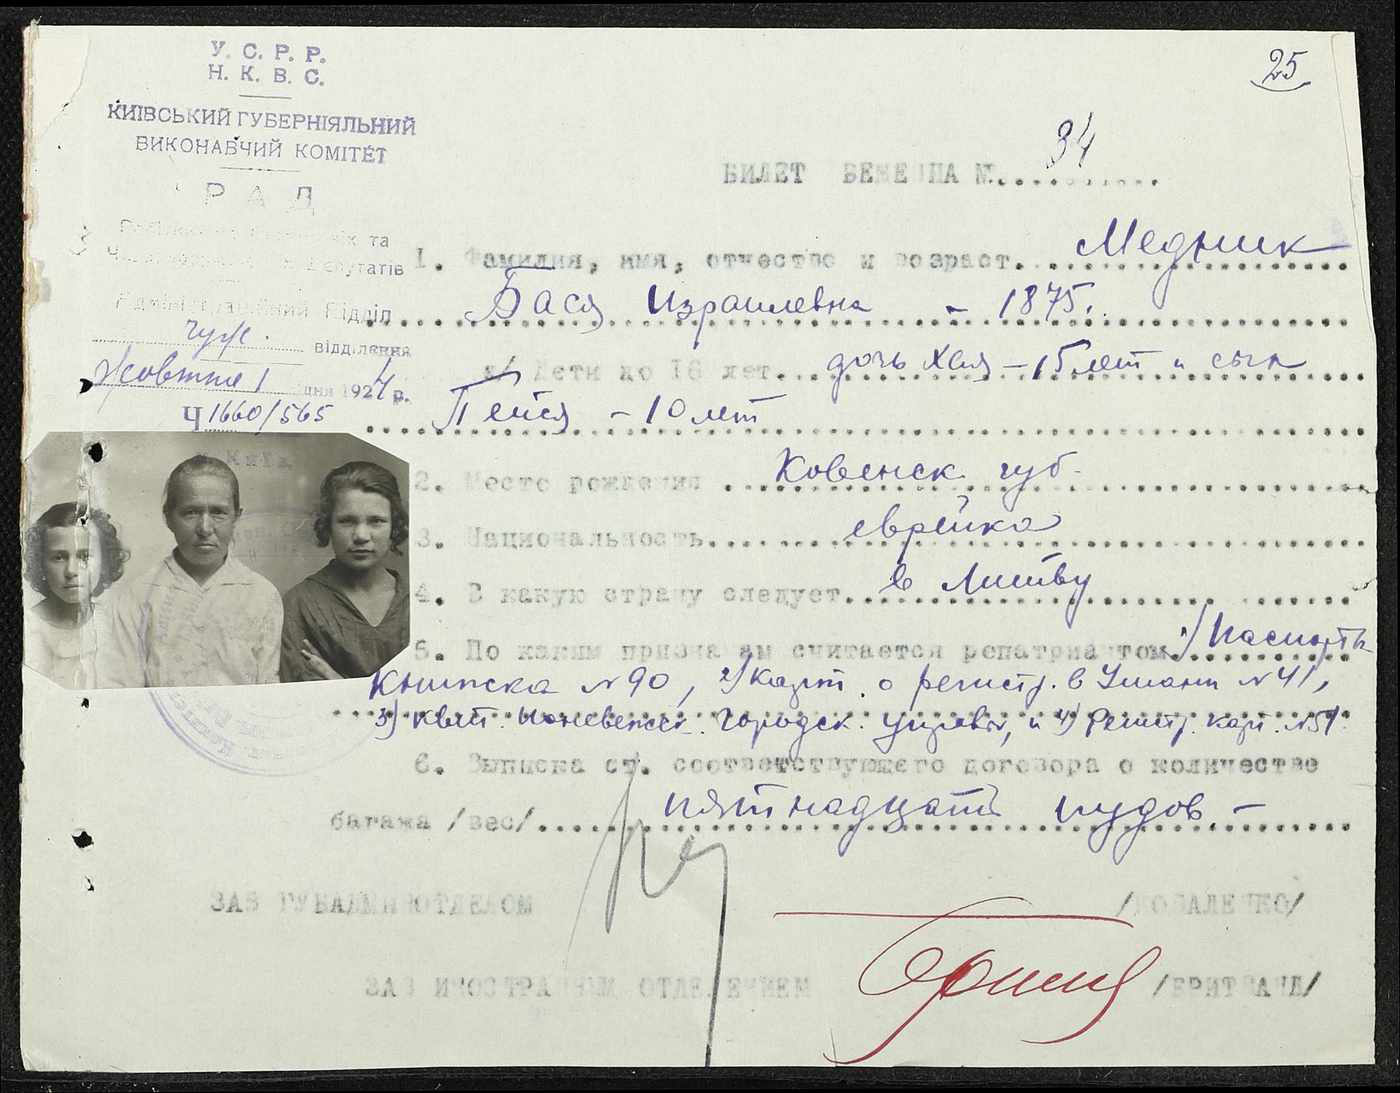 25
У. С. Р. Р.
Н. К. В. С.
КИЇВСЬКИЙ ГУБЕРНІЯЛЬНИЙ
ВИКОНАВЧИЙ КОМІТЕТ
РАД
та
Депутатів
Адміністраційний Відділ
відділення
Жовтня 1 дня 1924 р.
Ч 1660/565
БИЛЕТ БЕЖЕНЦА №. 34
1. Фамилия, имя, отчество и возраст. Медник
Бася Израилевна - 1875.
а/ Дети до 16 лет. дочь Хая - 15 лет и сын
Пейся - 10 лет
2. Место рождения Ковенск. губ.
3. Национальность еврейка
4. В какую страну следует в Литву
5. По каким признакам считается репатриантом 1) Паспорты
Книжка № 90, 2) Карт. о регистр. в Умани № 41,
3) Квит. Поневежск. Городск. управы, и 4) Регистр. карт. № 51.
6. Выписка ст. соответствующего договора о количестве
багажа /вес/ пятнадцать пудов. -
ЗАВ ГУБАДМИНОТДЕЛОМ /КОВАЛЕНКО/
ЗАВ ИНОСТРАННЫМ ОТДЕЛЕНИЕМ /БРИТВАНД/